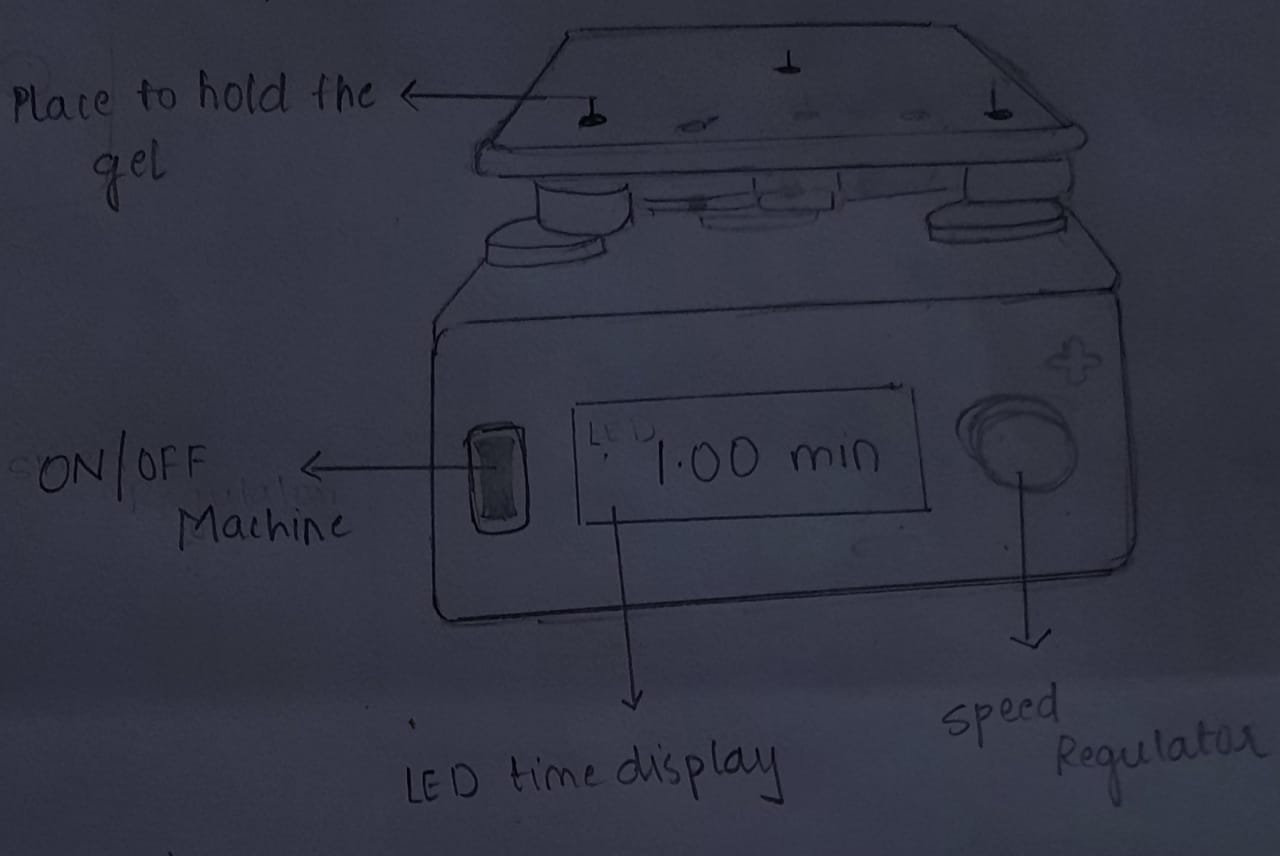 Place to hold the
gel
ON/OFF
Machine
LED
1.00 min
LED time display
Speed
Regulator